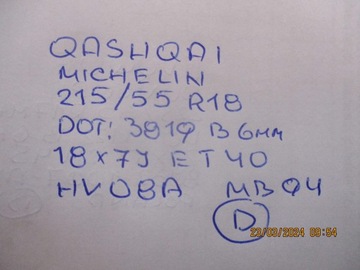 QASHQAI
MICHELIN
215/55 R18
DOT: 3819 B 6mm
18x7J ET40
HV08A MB04
D
23/03/2024 09:54